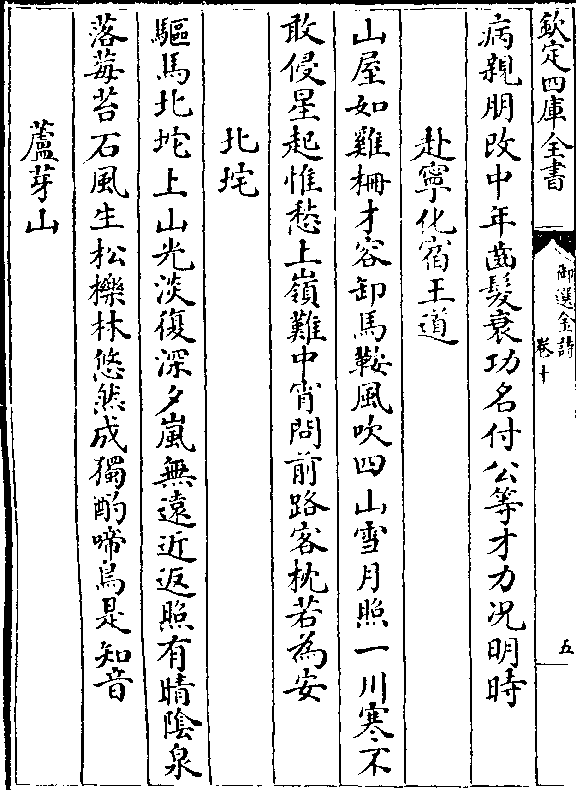 欽定四庫全書
御選金詩
卷十
五
病親朋改中年齒髮衰功名付公等才力况明時
赴寧化宿王道
山屋如雞栅才容卸馬鞍風吹四山雪月照一川寒不
敢侵星起惟愁上嶺難中宵問前路客枕若為安
北坨
驅馬北坨上山光淡復深夕嵐無遠近返照有晴陰泉
落莓苔石風生松櫟林悠然成獨酌啼鳥是知音
蘆芽山